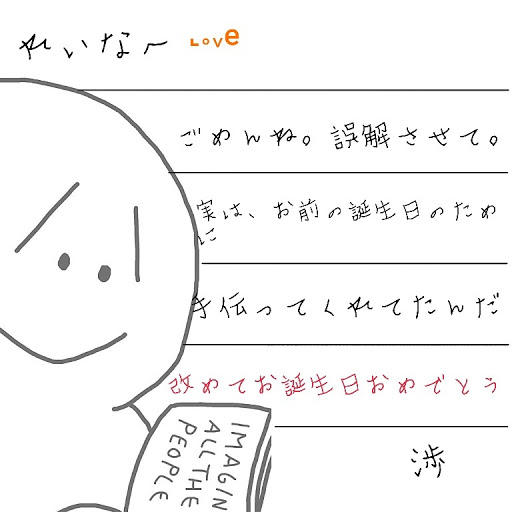 れいなー LOVe
ごめんね。誤解させて。
実は、お前の誕生日のため
に
手伝ってくれてたんだ
改めてお誕生日おめでとう
渉
IMAGIN
ALL THE
PEOPLE